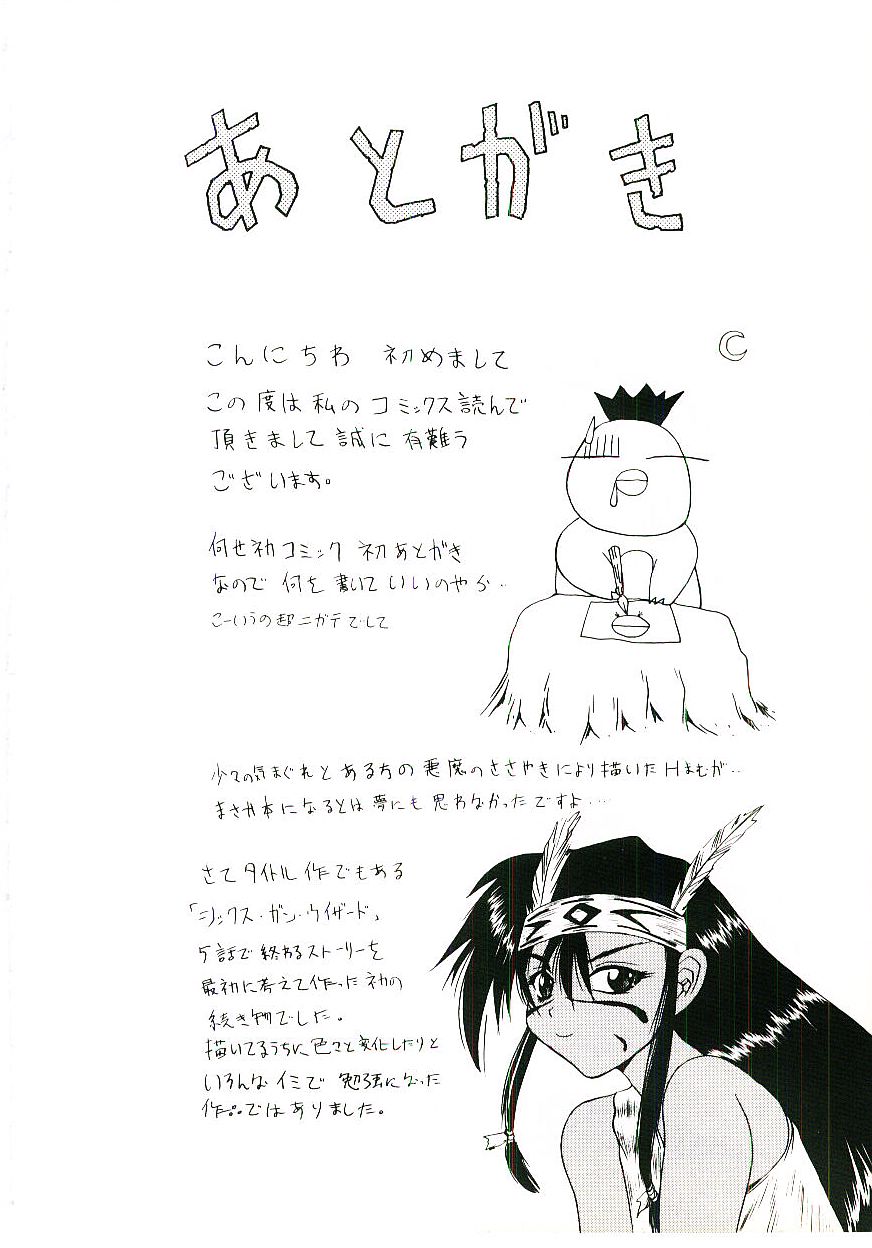 あとがき
こんにちわ 初めまして
この度は私のコミックス読んで
頂きまして誠に有難う
ございます。
何せ初コミック 初あとがき
なので何を書いていいのやら‥
こーいうの超ニガテでして
少々の気まぐれとある方の悪魔のささやきにより描いたHまもが‥
まさか本になるとは夢にも思わなかったですよ‥‥
さてタイトル作でもある
「シックス・ガン・ウィザード」
5話で終わるストーリーを
最初に考えて作った初の
続き物でした。
描いてるうちに色々と変化したりと
いろんなイミで勉強になった
作‥ではありました。